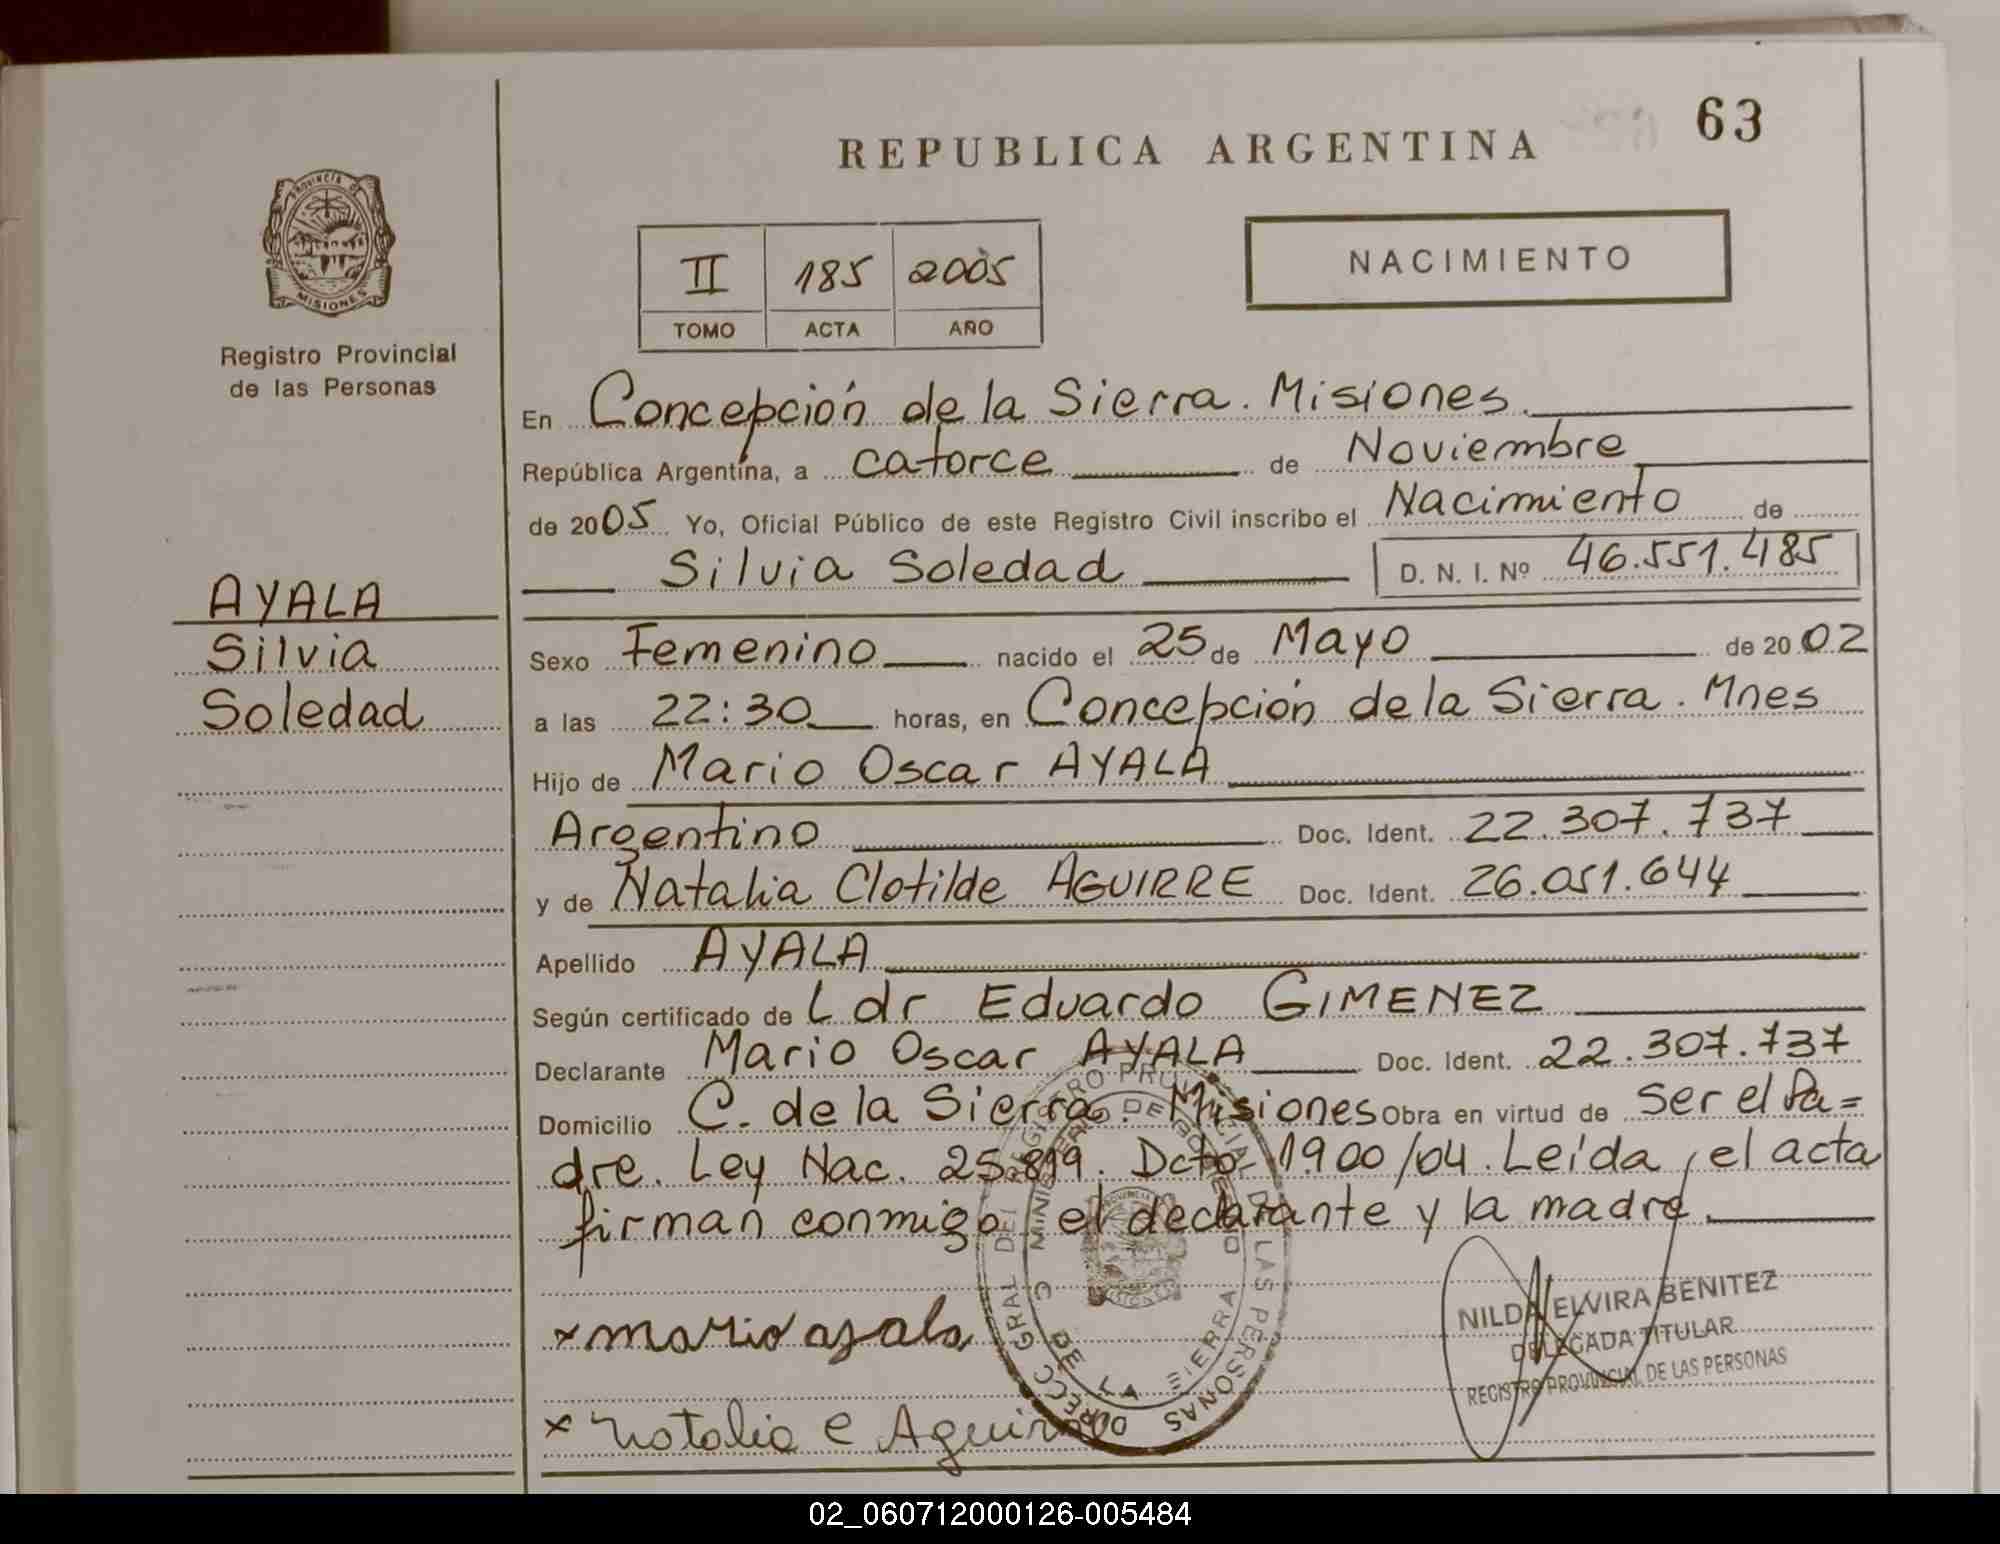 63
REPUBLICA ARGENTINA
PROVINCIA DE
MISIONES
Registro Provincial
de las Personas
II 185 2005
TOMO ACTA AÑO
NACIMIENTO
En Concepción de la Sierra. Misiones.
República Argentina, a catorce de Noviembre
de 2005 Yo, Oficial Público de este Registro Civil inscribo el Nacimiento de
Silvia Soledad D. N. I. Nº 46.551.485
AYALA
Silvia
Soledad
Sexo Femenino nacido el 25 de Mayo de 2002
a las 22:30 horas, en Concepción de la Sierra. Mnes
Hijo de Mario Oscar AYALA
Argentino Doc. Ident. 22.307.737
y de Natalia Clotilde AGUIRRE Doc. Ident. 26.051.644
Apellido AYALA
Según certificado de Ldr Eduardo GIMENEZ
Declarante Mario Oscar AYALA Doc. Ident. 22.307.737
Domicilio C. de la Sierra. Misiones Obra en virtud de ser el Pa=
dre. Ley Nac. 25.819. Dcto 1900/04. Leída, el acta
firman conmigo, el declarante y la madre.
x mario ayala
x Natalia e Aguirre
NILDA ELVIRA BENITEZ
DELEGADA TITULAR
REGISTRO PROVINCIAL DE LAS PERSONAS
02_060712000126-005484